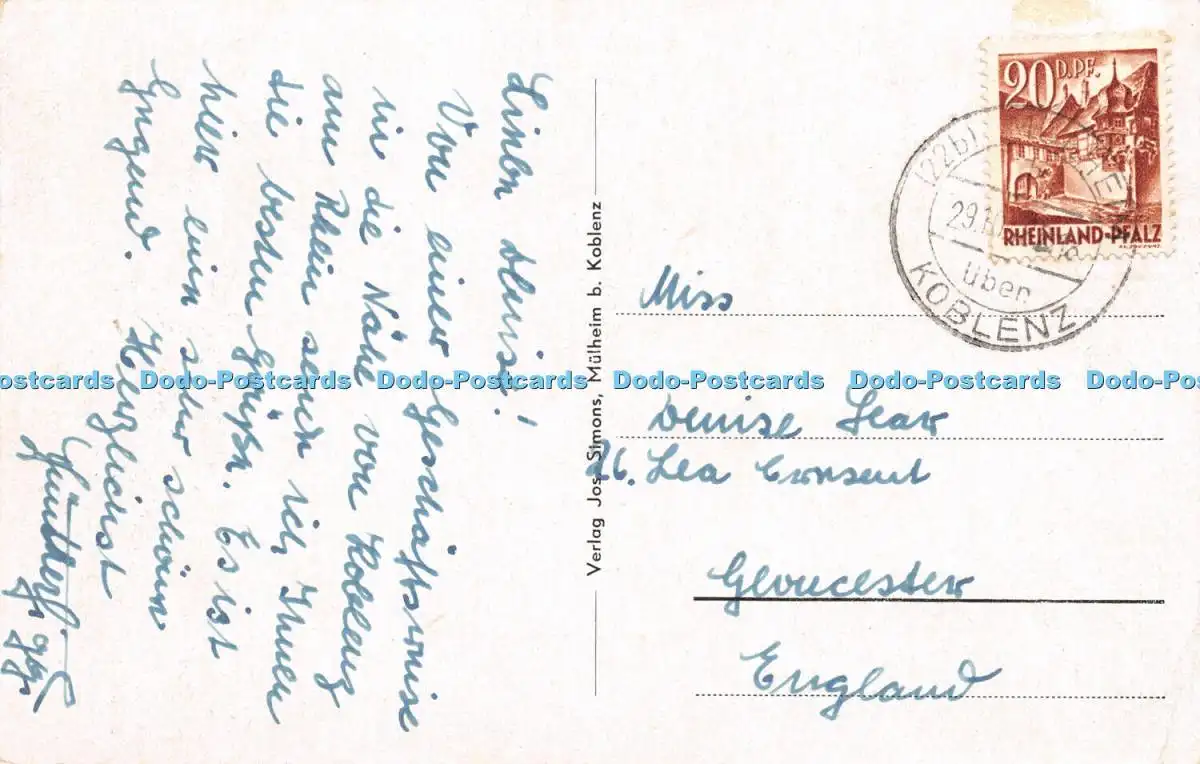 Liebe Denise!
Von einer Geschäftsreise
in die Nähe von Koblenz
am Rhein sende ich Ihnen
die besten Grüße. Es ist
hier eine sehr schöne
Gegend. Herzlichst
Günther
Verlag Jos. Simons, Mülheim b. Koblenz
20 D.PF.
RHEINLAND-PFALZ
(22b)
29.10
über
KOBLENZ
Miss
Denise Lear
26. Lea Cronsent
Gloucester
England
Dodo-Postcards Dodo-Postcards Dodo-Postcards Dodo-Postcards Dodo-Postcards Dodo-Postcards